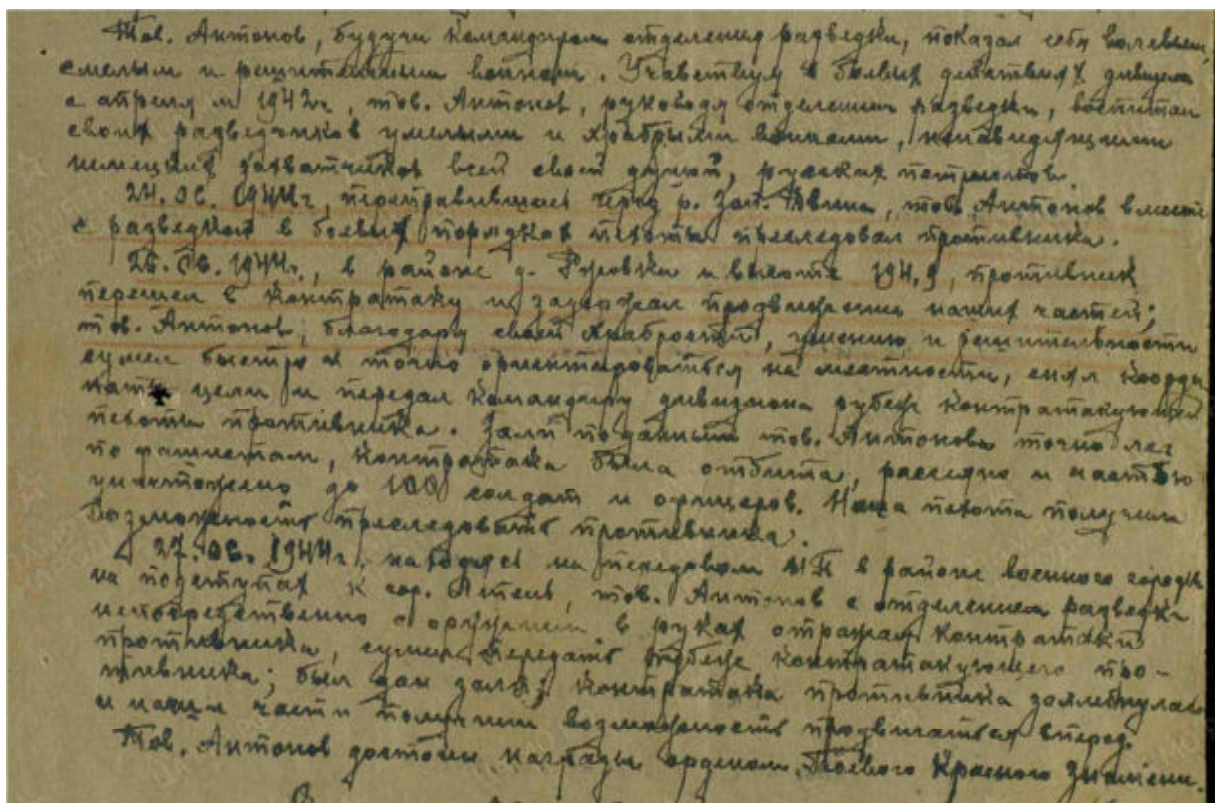 Тов. Антонов, будучи командиром отделения разведки, показал себя волевым,
смелым и решительным воином. Участвуя в боевых действиях дивизиона
с апреля м 1942г, тов. Антонов, руководя отделением разведки, воспитал
своих разведчиков умелыми и храбрыми воинами, ненавидящими
немецких захватчиков всей своей душой, русских патриотов.
24.06.1944г, переправившись через р. Зап. Двина, тов. Антонов вместе
с разведкой в боевых порядках пехоты преследовал противника.
26.06.1944г., в районе д. и высоте 194,9, противник
перешел в контратаку и задержал продвижение наших частей;
тов. Антонов, благодаря своей храбрости, умению и решительности
сумел быстро и точно ориентироваться на местности, снял коорди
наты цели и передал командиру дивизиона рубеж контратакующей
пехоты противника. Залп по данным тов. Антонова точно лег
по фашистам, контратака была отбита, рассеяно и частью
уничтожено до 100 солдат и офицеров. Наша пехота получила
возможность преследовать противника.
27.06.1944г. находясь на передовом НП в районе военного городка
на подступах к гор. тов. Антонов с отделением разведки
непосредственно с оружием в руках отражая контратаки
противника, сумел передать рубеж контратакующего про-
тивника; был дан залп; контратака противника захлебнулась
и наши части получили возможность продвигаться вперед.
Тов. Антонов достоин награды орденом „Боевого Красного Знамени.